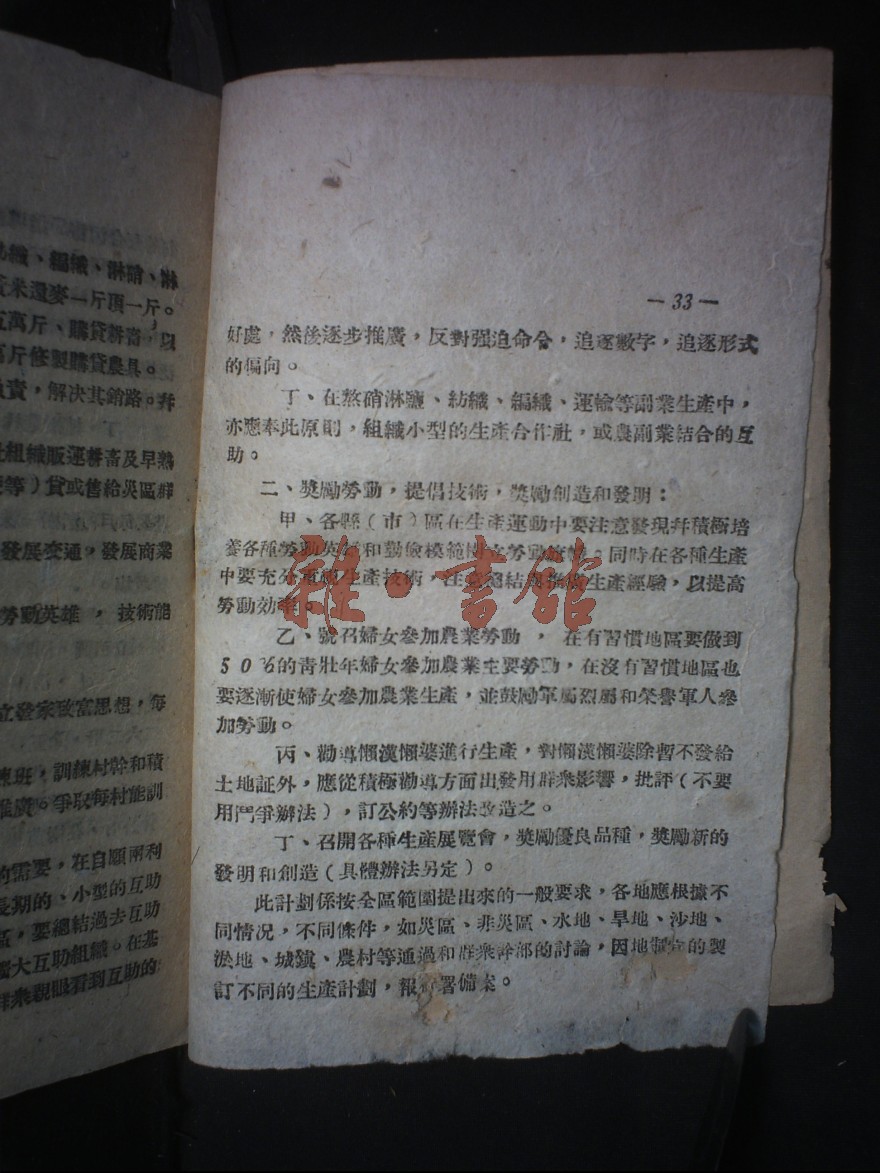 織、編織、淋硝、淋
米還麥一斤頂一斤。
萬斤、購貸耕畜，以
斤修製購貸農具。
責，解决其銷路。并
組織販運耕畜及早熟
等）貸或售給災區群
發展交通，發展商業
勞動英雄，技術能
立發家致富思想，每
班，訓練村幹和積
推廣。爭取每村能訓
的需要，在自願兩利
長期的、小型的互助
，要總結過去互助
大互助組織。在基
群衆親眼看到互助的
—33—
好處，然後逐步推廣，反對强迫命令，追逐數字，追逐形式
的偏向。
丁、在熬硝淋鹽、紡織、編織、運輸等副業生產中，
亦應奉此原則，組織小型的生產合作社，或農副業結合的互
助。
二、獎勵勞動，提倡技術，獎勵創造和發明：
甲、各縣（市）區在生產運動中要注意發現并積極培
養各種勞動英雄和勤儉模範樹立勞動旗幟。同時在各種生產
中要充分重視生產技術，注意總結與推廣生產經驗，以提高
勞動效率。
乙、號召婦女參加農業勞動，在有習慣地區要做到
50%的青壯年婦女參加農業主要勞動，在沒有習慣地區也
要逐漸使婦女參加農業生產，並鼓励軍屬烈屬和荣譽軍人參
加勞動。
丙、勸導懶漢懶婆進行生產，對懶漢懶婆除暫不發給
土地証外，應從積極勸導方面出發用群衆影響，批評（不要
用鬥爭辦法），訂公約等辦法改造之。
丁、召開各種生產展覽會，獎励優良品種，獎励新的
發明和創造（具體辦法另定）。
此計劃係按全區範圍提出來的一般要求，各地應根據不
同情况，不同條件，如災區、非災區、水地、旱地、沙地、
淤地、城鎮、農村等通過和群衆幹部的討論，因地制宜的製
訂不同的生產計劃，報行署備案。
雜·書館